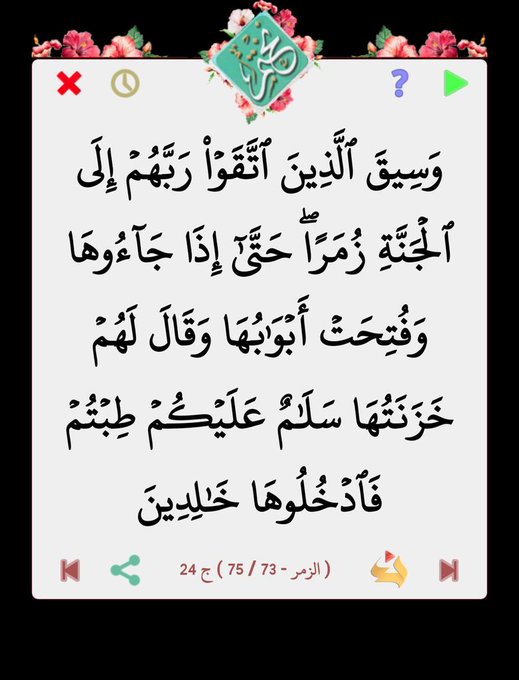 وَسِيقَ ٱلَّذِينَ ٱتَّقَوْا۟ رَبَّهُمْ إِلَى
ٱلْجَنَّةِ زُمَرًا ۖ حَتَّىٰٓ إِذَا جَآءُوهَا
وَفُتِحَتْ أَبْوَٰبُهَا وَقَالَ لَهُمْ
خَزَنَتُهَا سَلَٰمٌ عَلَيْكُمْ طِبْتُمْ
فَٱدْخُلُوهَا خَٰلِدِينَ
( الزمر - 73 / 75 ) ج 24